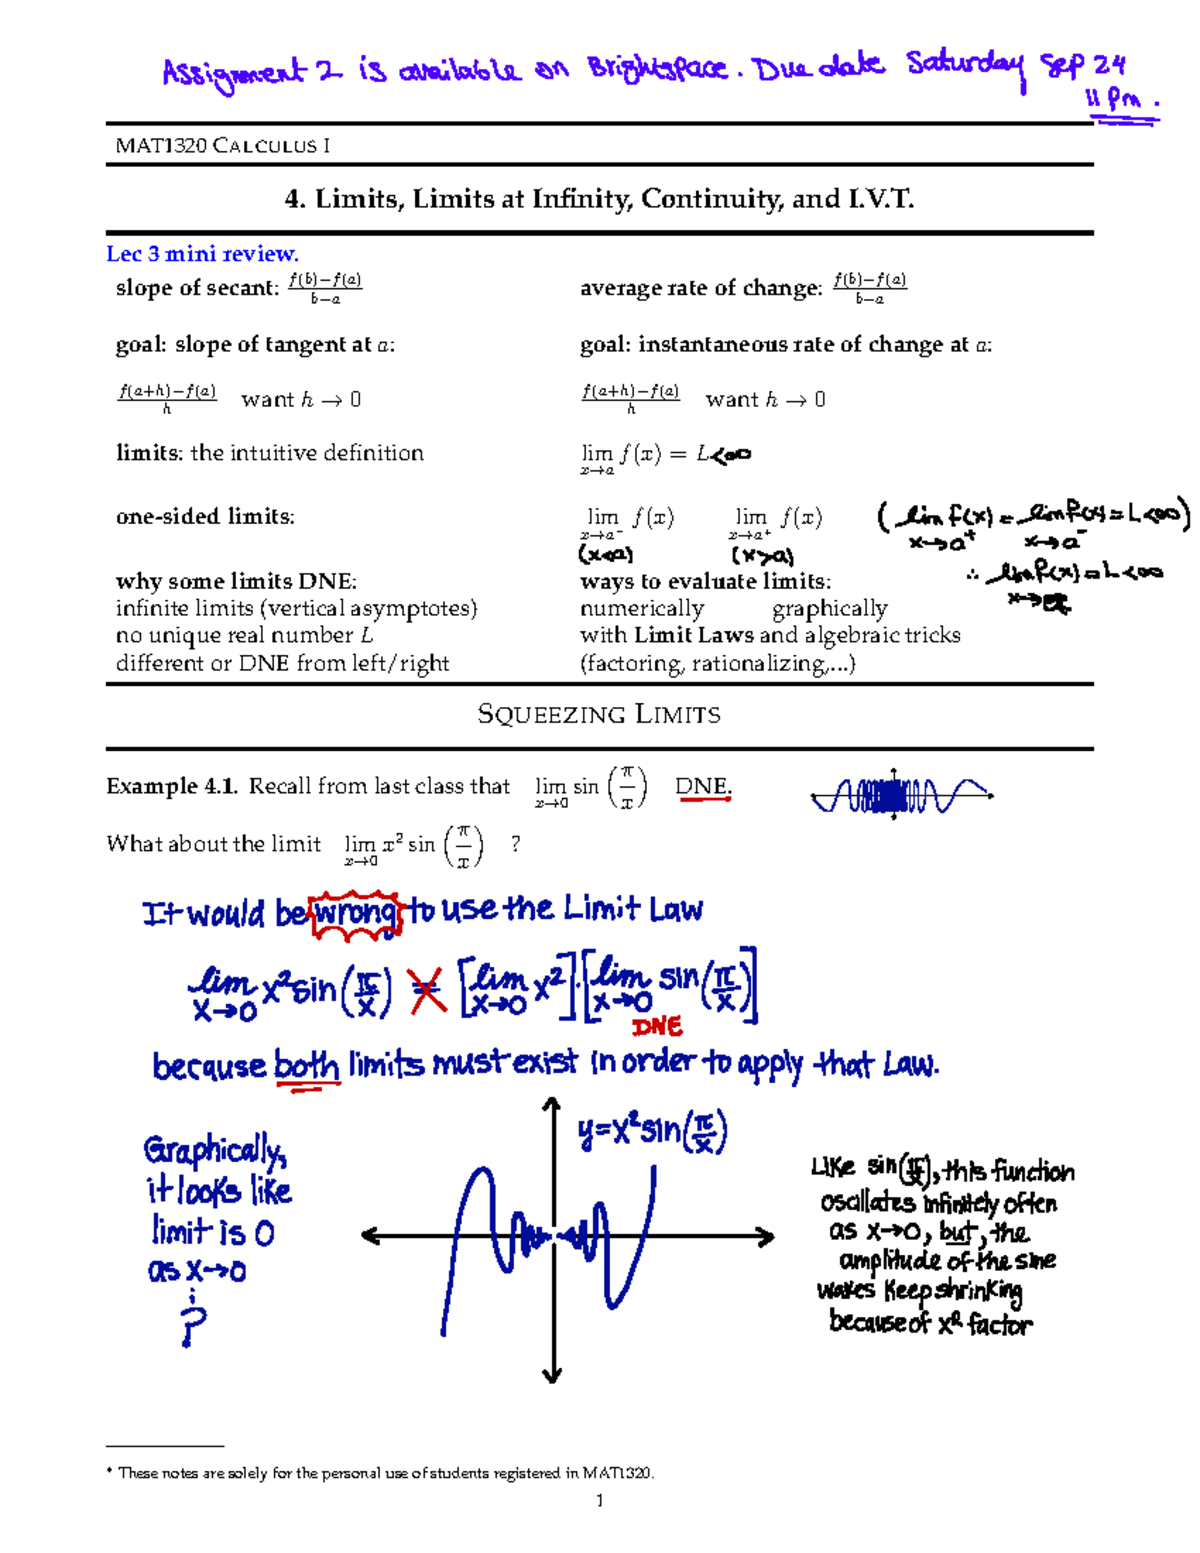 Assignment 2 is available on Brightspace. Due date Saturday Sep 24
11 pm.
MAT1320 CALCULUS I
4. Limits, Limits at Infinity, Continuity, and I.V.T.
Lec 3 mini review.
slope of secant: f(b)−f(a) / b−a average rate of change: f(b)−f(a) / b−a
goal: slope of tangent at a: goal: instantaneous rate of change at a:
f(a+h)−f(a) / h want h → 0 f(a+h)−f(a) / h want h → 0
limits: the intuitive definition lim x→a f(x) = L <∞
one-sided limits: lim x→a⁻ f(x) lim x→a⁺ f(x) (lim x→a⁺ f(x) = lim x→a⁻ f(x) = L <∞)
(x<a) (x>a)
∴ lim f(x) = L <∞
why some limits DNE: ways to evaluate limits:
infinite limits (vertical asymptotes) numerically graphically
no unique real number L with Limit Laws and algebraic tricks
different or DNE from left/right (factoring, rationalizing,...)
SQUEEZING LIMITS
Example 4.1. Recall from last class that lim x→0 sin (π/x) DNE.
What about the limit lim x→0 x² sin (π/x) ?
It would be wrong to use the Limit Law
lim x→0 x² sin(π/x) = [lim x→0 x²]·[lim x→0 sin(π/x)]
DNE
because both limits must exist in order to apply that Law.
y=x² sin(π/x)
Graphically,
it looks like
limit is 0
as x→0
?
Like sin(π/x), this function
oscillates infinitely often
as x→0, but, the
amplitude of the sine
waves keep shrinking
because of x² factor
* These notes are solely for the personal use of students registered in MAT1320.
1